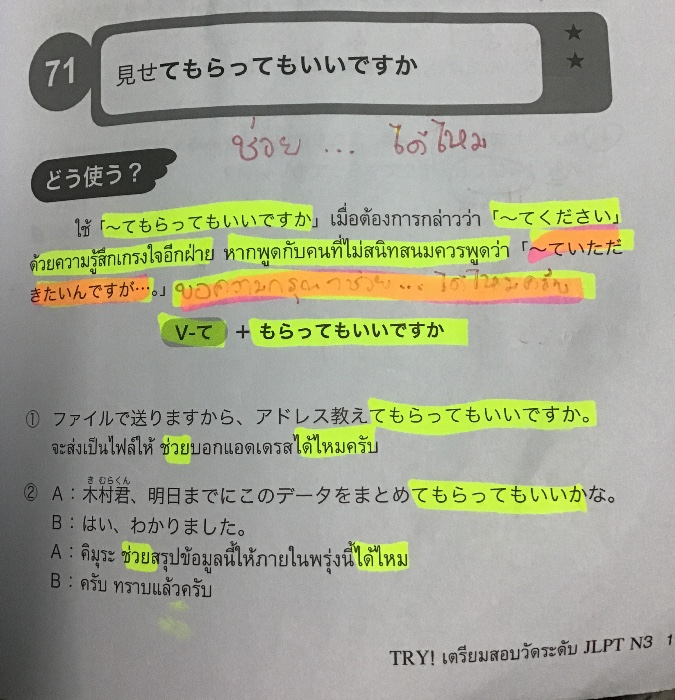 71
見せてもらってもいいですか
★
★
ช่อย ... ได้ไหม
どう使う？
ใช้「～てもらってもいいですか」เมื่อต้องการกล่าวว่า「～てください」
ด้วยความรู้สึกเกรงใจอีกฝ่าย หากพูดกับคนที่ไม่สนิทสนมควรพูดว่า「～ていただ
きたいんですが…。」ขอความกรุณาช่วย... ได้ไหมครับ
V-て + もらってもいいですか
① ファイルで送りますから、アドレス教えてもらってもいいですか。
จะส่งเป็นไฟล์ให้ ช่วยบอกแอดเดรสได้ไหมครับ
きむらくん
② A：木村君、明日までにこのデータをまとめてもらってもいいかな。
B：はい、わかりました。
A：คิมุระ ช่วยสรุปข้อมูลนี้ให้ภายในพรุ่งนี้ได้ไหม
B：ครับ ทราบแล้วครับ
TRY! เตรียมสอบวัดระดับ JLPT N3 1